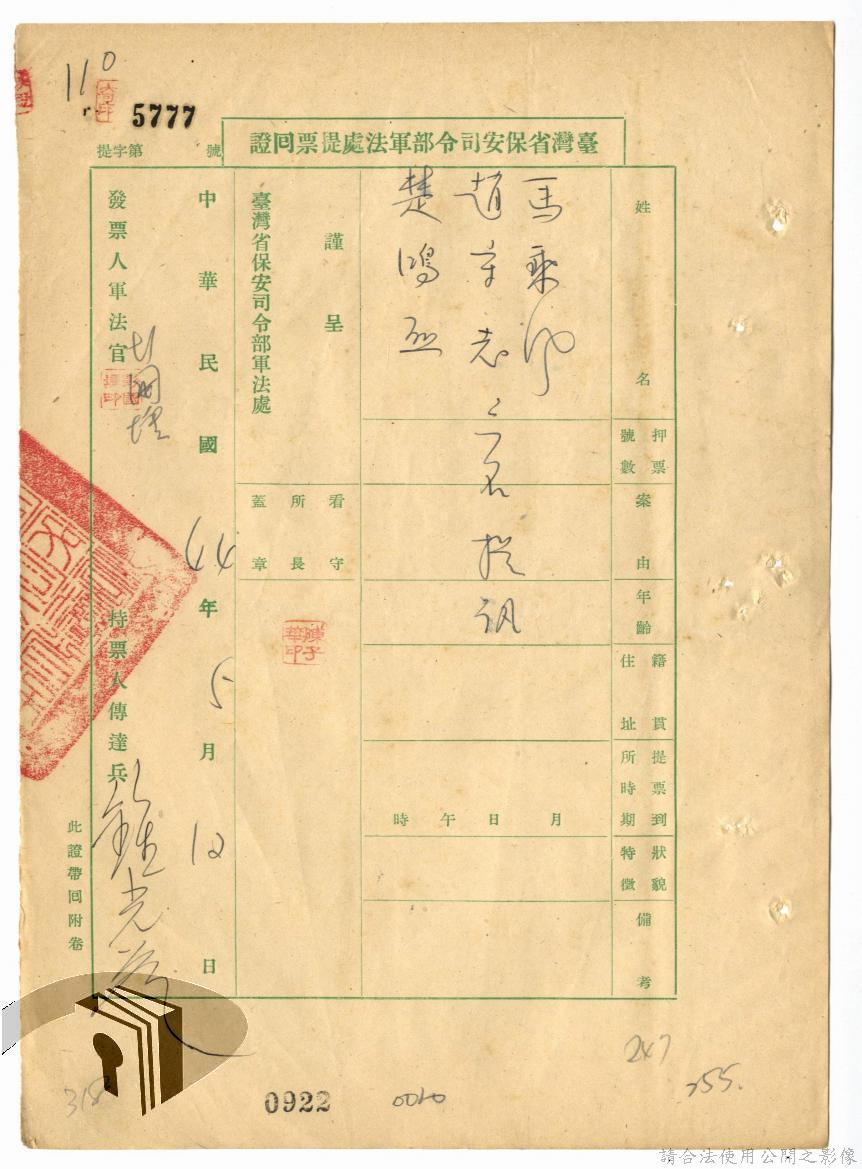 110
5777
提字第 號
臺灣省保安司令部軍法處提票回證
姓名
馬乘風
趙守志
楚鴻烈
三名提訊
押票號數
案由
年齡
籍貫住址
提票到所時期
月 日 午 時
狀貌特徵
備考
謹呈
臺灣省保安司令部軍法處
看守所長蓋章
陳子華印
中華民國44年5月12日
發票人軍法官
持票人傳達兵
此證帶回附卷
247
255.
0922
請合法使用公開之影像